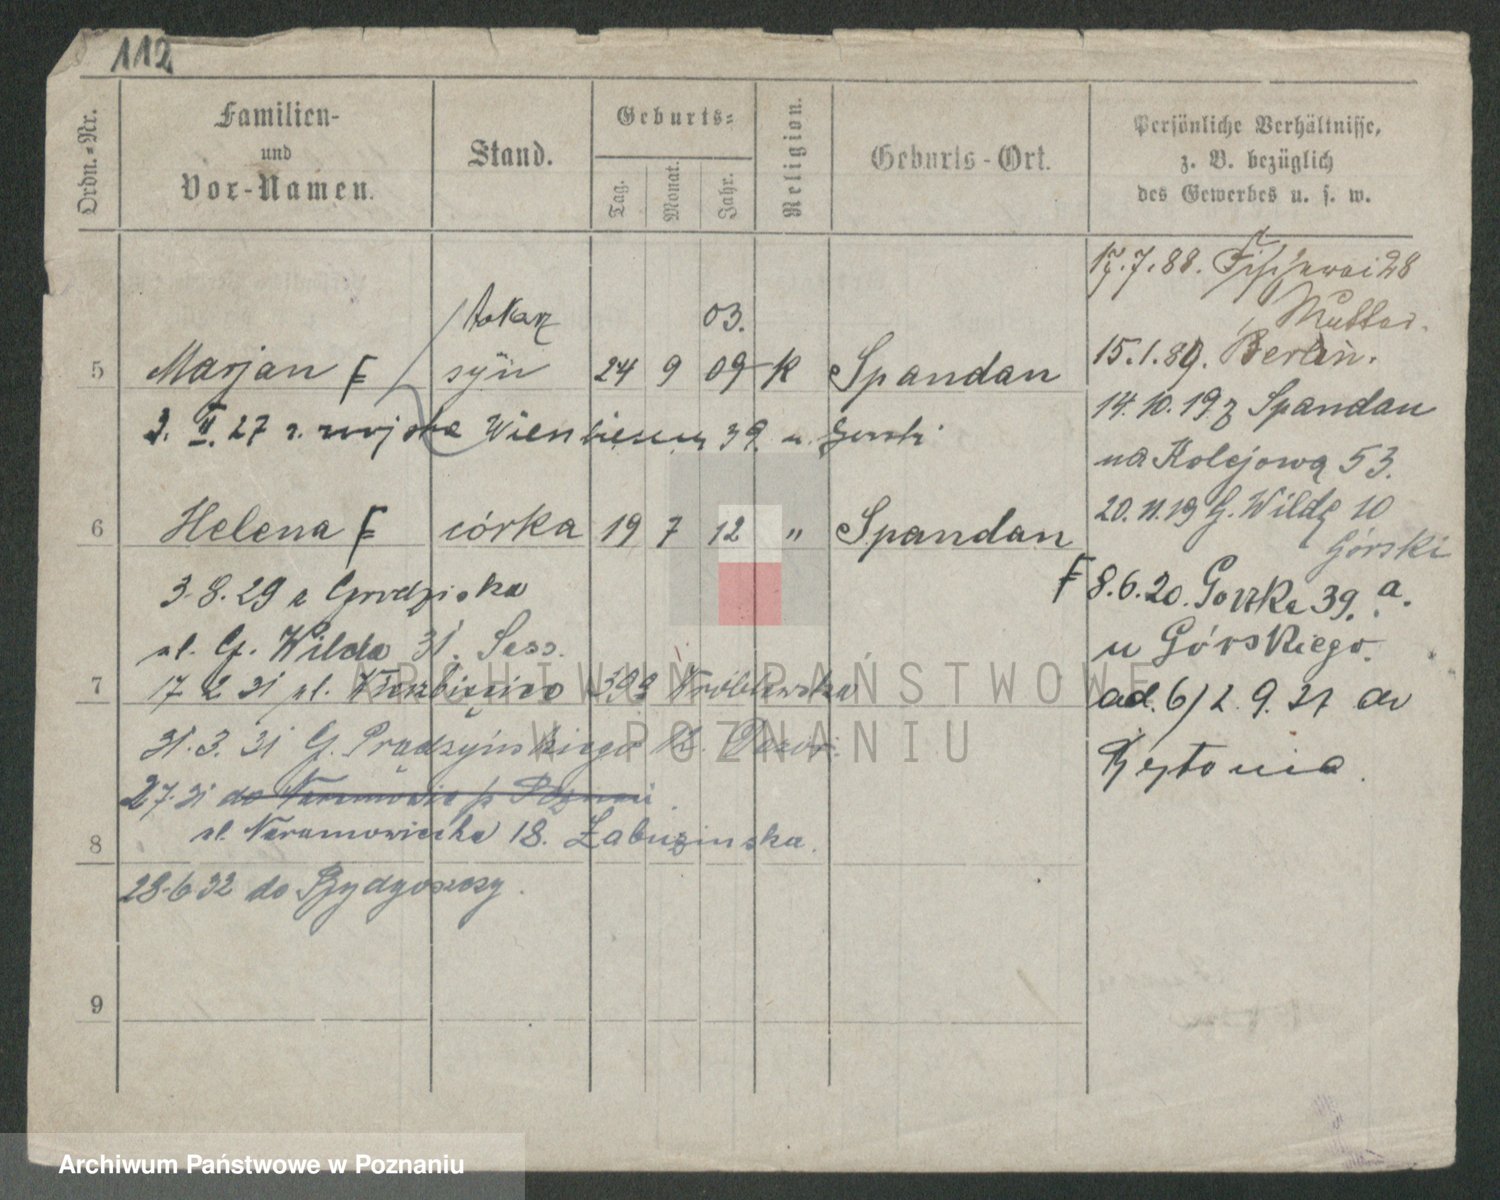 112
Ordn.-Nr.
Familien-
und
Vor-Namen.
Stand.
Geburts-
Tag.
Monat.
Jahr.
Religion.
Geburts-Ort.
Persönliche Verhältnisse,
z. B. bezüglich
des Gewerbes u. s. w.
17.7.88. 28
Mutter.
15.1.89. Berlin.
14.10.19 z Spandau
na Kolejową 53.
20.11.19 G. Wildę 10
Górski
8.6.20. 39. a.
u Górskiego.
ad. 6/ 2.9.21 do
Bytonia.
tokarz
03.
5 Marjan syn 24 9 09 k Spandau
2. II. 27 z wojska 39. u Górski
6 Helena córka 19 7 12 " Spandau
3.8.29 z Grodziska
ul. G. Wilda 31. Sass.
7 17 2 31 ul. Wierzbięcice Wróblewska
31.3.31 G. Prądzyńskiego
27.31 do p. Poznań.
8 ul. Naramowicka 18. Żabuzinska.
28.6.32 do Bydgoszczy.
9
ARCHIWUM PAŃSTWOWE
W POZNANIU
Archiwum Państwowe w Poznaniu